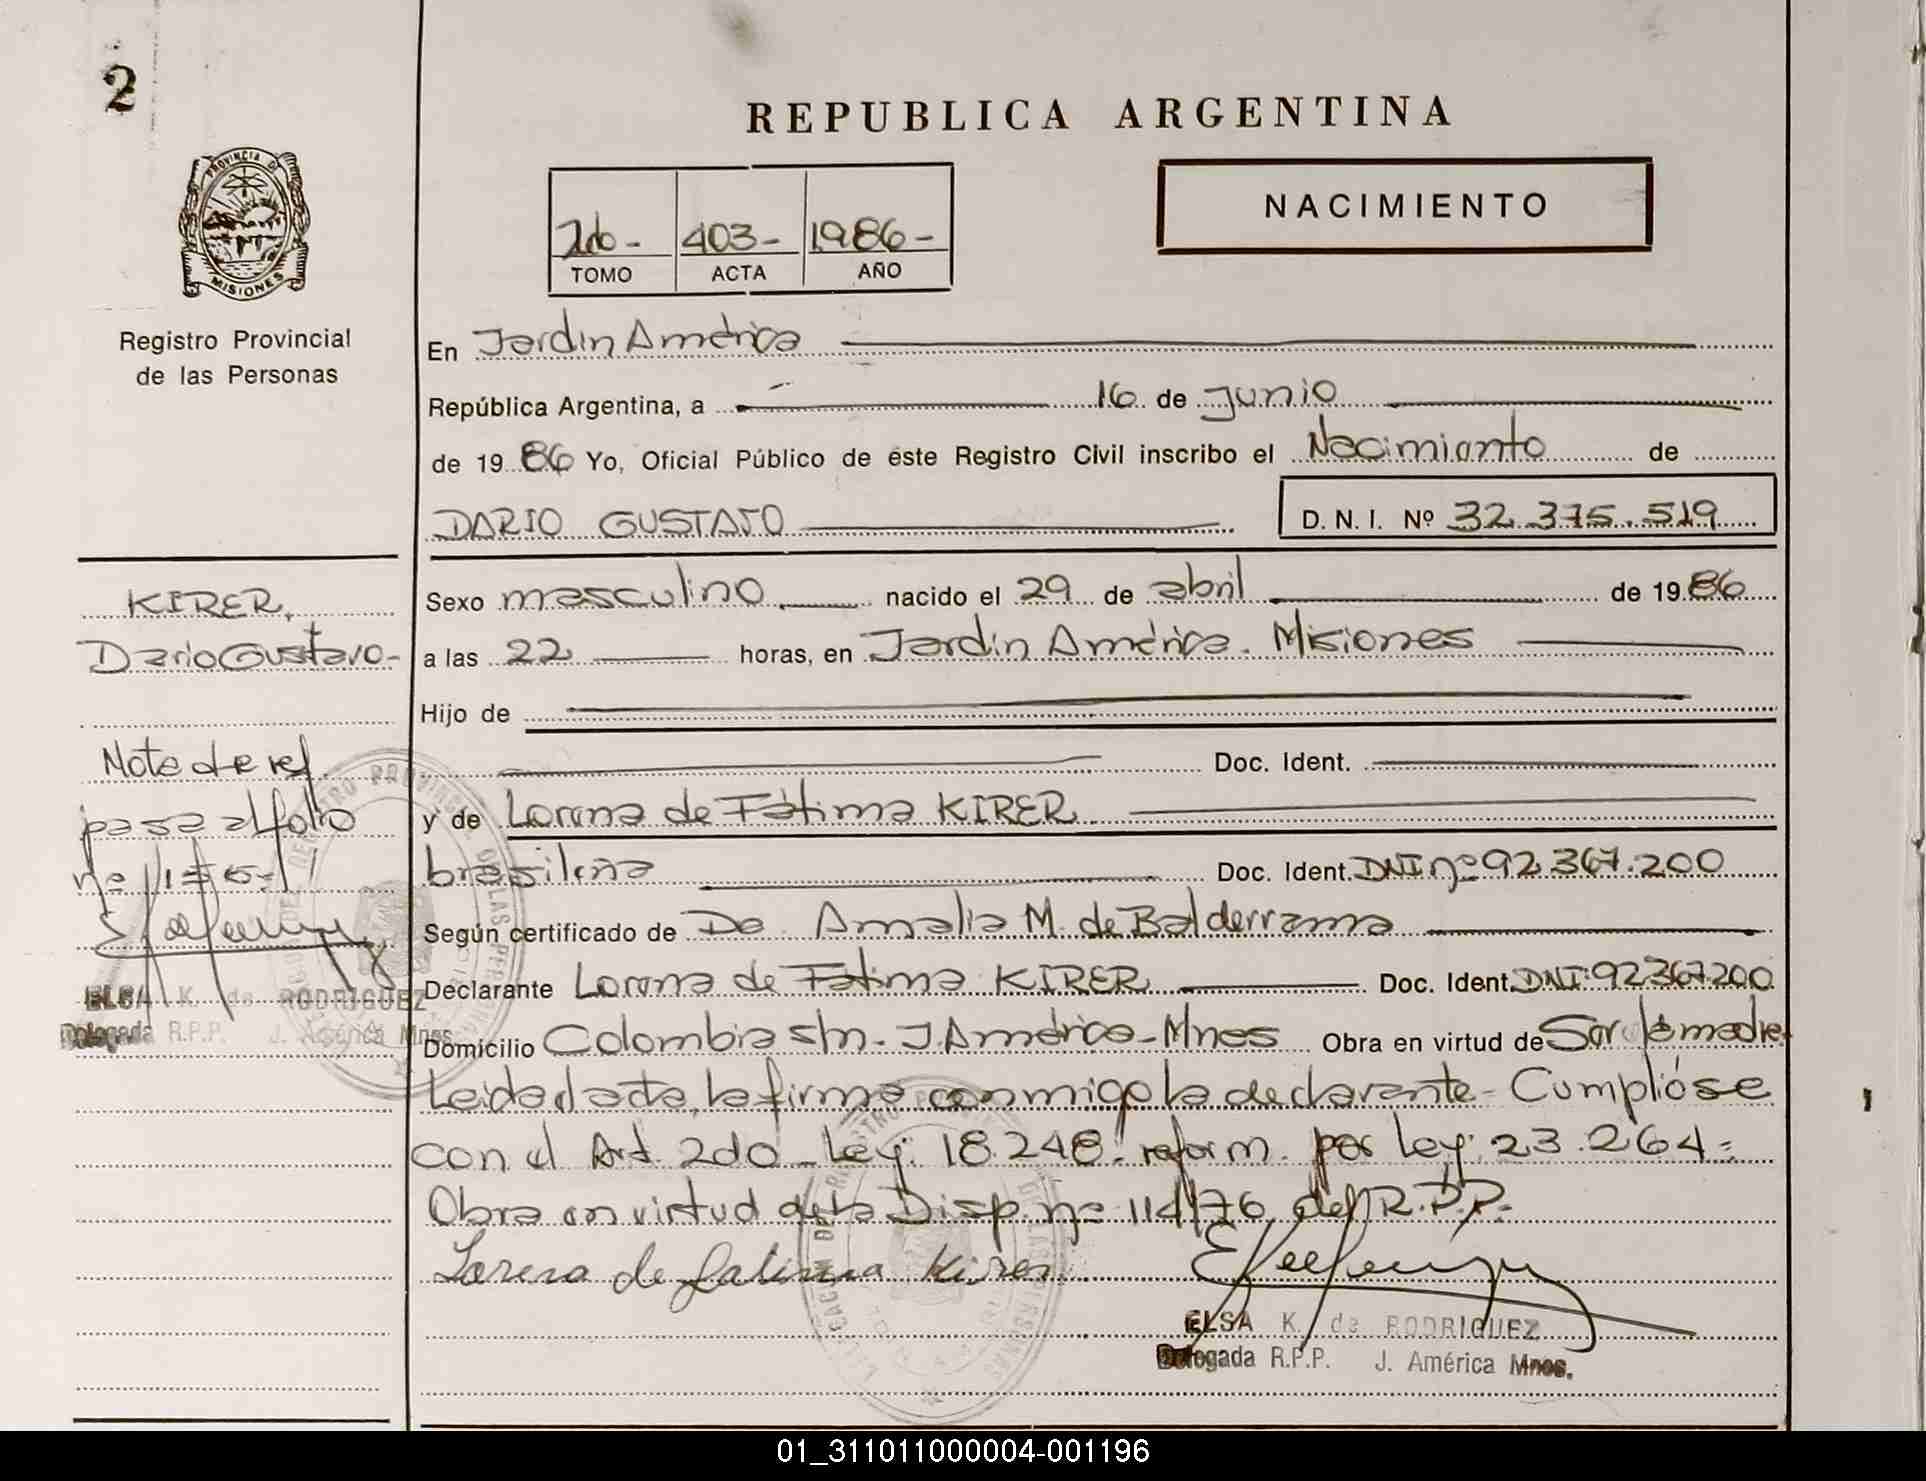 2
REPUBLICA ARGENTINA
PROVINCIA DE
MISIONES
NACIMIENTO
2do - 403 - 1986 -
TOMO ACTA AÑO
Registro Provincial
de las Personas
En Jardín América
República Argentina, a 16 de junio
de 1986 Yo, Oficial Público de éste Registro Civil inscribo el Nacimiento de
DARIO GUSTAVO D. N. I. Nº 32.375.519
KIRER,
Dario Gustavo-
Sexo masculino nacido el 29 de abril de 1986
a las 22 horas, en Jardín América. Misiones
Hijo de
Doc. Ident.
y de Lorena de Fátima KIRER
brasileña Doc. Ident. DNI nº 92.367.200
Según certificado de De Amalia M. de Balderrama
Declarante Lorena de Fátima KIRER Doc. Ident. DNI: 92367200
Domicilio Colombia s/n. J. América-Mnes Obra en virtud de Ser la madre
Leida el acta, la firma conmigo la declarante- Cumplióse
con el Art. 2do Ley: 18.248. reform. por ley: 23.264=
Obra en virtud de la Disp. nº 114/76 del R.P.P.
Lorena de Fatima Kirer
ELSA K. de RODRIGUEZ
Delegada R.P.P. J. América Mnes.
Nota de ref.
pasa al folio
nº
ELSA K. de RODRIGUEZ
Delegada R.P.P. J. América Mnes.
01_311011000004-001196